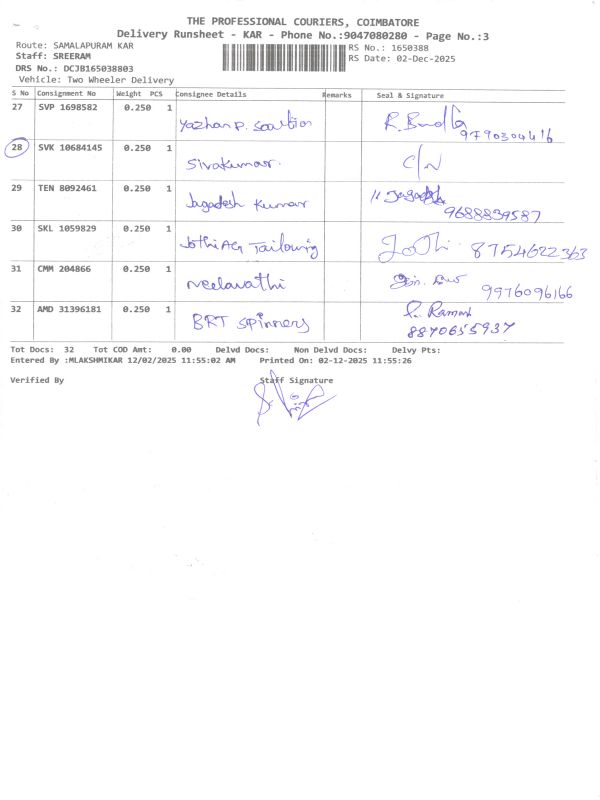 THE PROFESSIONAL COURIERS, COIMBATORE
Delivery Runsheet - KAR - Phone No.:9047080280 - Page No.:3
Route: SAMALAPURAM KAR RS No.: 1650388
Staff: SREERAM RS Date: 02-Dec-2025
DRS No.: DCJB165038803
Vehicle: Two Wheeler Delivery
S No Consignment No Weight PCS Consignee Details Remarks Seal & Signature
27 SVP 1698582 0.250 1
Yazhan P.
9790304416
28 SVK 10684145 0.250 1
Sivakumar. C/N
29 TEN 8092461 0.250 1
Jagadesh Kumar
9688839587
30 SKL 1059829 0.250 1
Tailoring JoThi 8754622363
31 CMM 204866 0.250 1
Neelavathi
9976096166
32 AMD 31396181 0.250 1
BRT Spinners
8870655937
Tot Docs: 32 Tot COD Amt: 0.00 Delvd Docs: Non Delvd Docs: Delvy Pts:
Entered By :MLAKSHMIKAR 12/02/2025 11:55:02 AM Printed On: 02-12-2025 11:55:26
Verified By Staff Signature